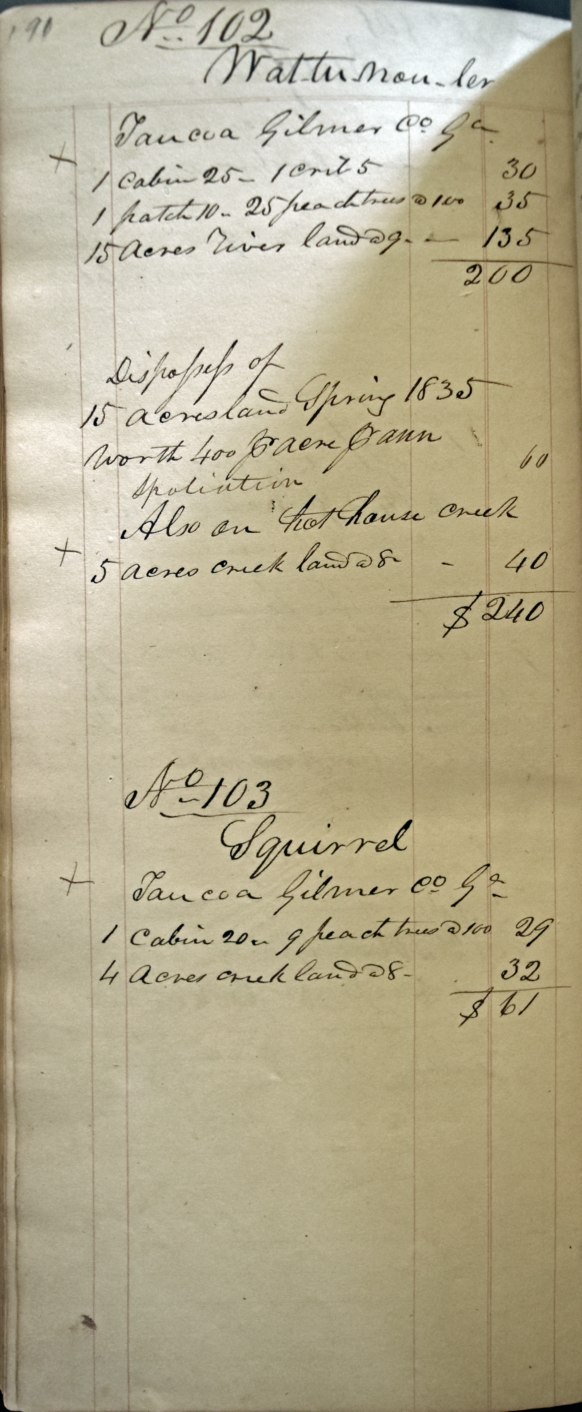 190
No. 102
Wattu-nou-ler
Taucoa Gilmer Co Ga
+
1 cabin 25 - 1 crib 5 30
1 patch 10 - 25 peach trees @ 100 35
15 Acres River land @ 9 - - 135
200
Dispossess of
15 acres land Spring 1835
worth 400 pr acre pr ann
60
Spoliation
Also on hot house creek
+ 5 acres creek land @ 8 - 40
$ 240
No. 103
Squirrel
+ Taucoa Gilmer Co Ga
1 Cabin 20 - 9 peach trees @ 100 29
4 Acres creek land @ 8 - 32
$ 61